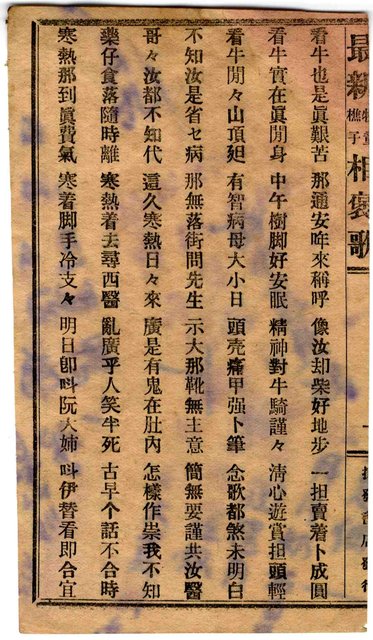 最新牧童樵子相褒歌
一
看牛也是眞艱苦　那通安哖來稱呼　像汝却柴好地步　一担賣着卜成圓
看牛實在眞閒身　中午樹脚好安眠　精神對牛騎謹々　淸心遊賞担頭輕
看牛閒々山頂廸　有智病母大小日　頭壳痛甲强卜筆　念歌都煞未明白
不知汝是省セ病　那無落街問先生　示大那靴無主意　簡無要謹共汝醫
哥々汝都不知代　這久寒熱日々來　廣是有鬼在肚內　怎樣作祟我不知
藥仔食落隨時離　寒熱着去尋西醫　亂廣乎人笑半死　古早个話不合時
寒熱那到眞費氣　寒着脚手冷支々　明日卽呌阮大姉　呌伊替看卽合宜